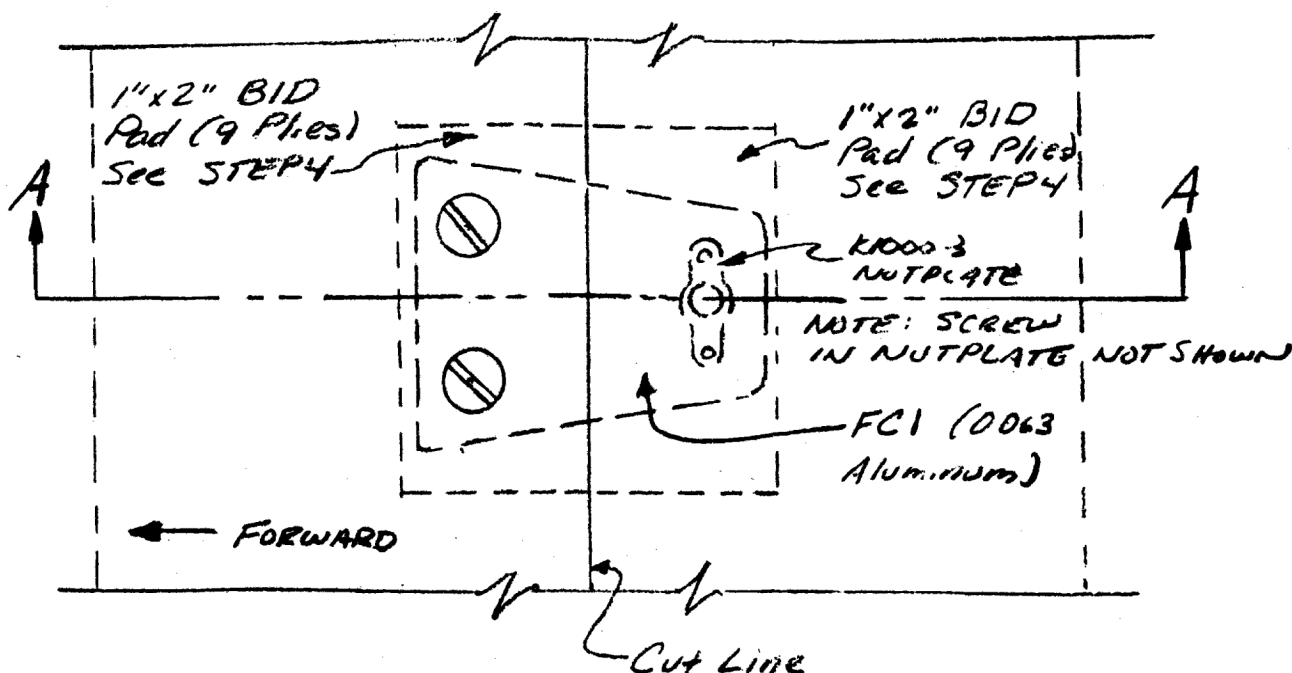 1"x2" BID
Pad (9 Plies)
See STEP 4
1"x2" BID
Pad (9 Plies)
See STEP 4
A
A
K1000-3
NUTPLATE
NOTE: SCREW
IN NUTPLATE NOT SHOWN
FC1 (0063
Aluminum)
FORWARD
Cut Line